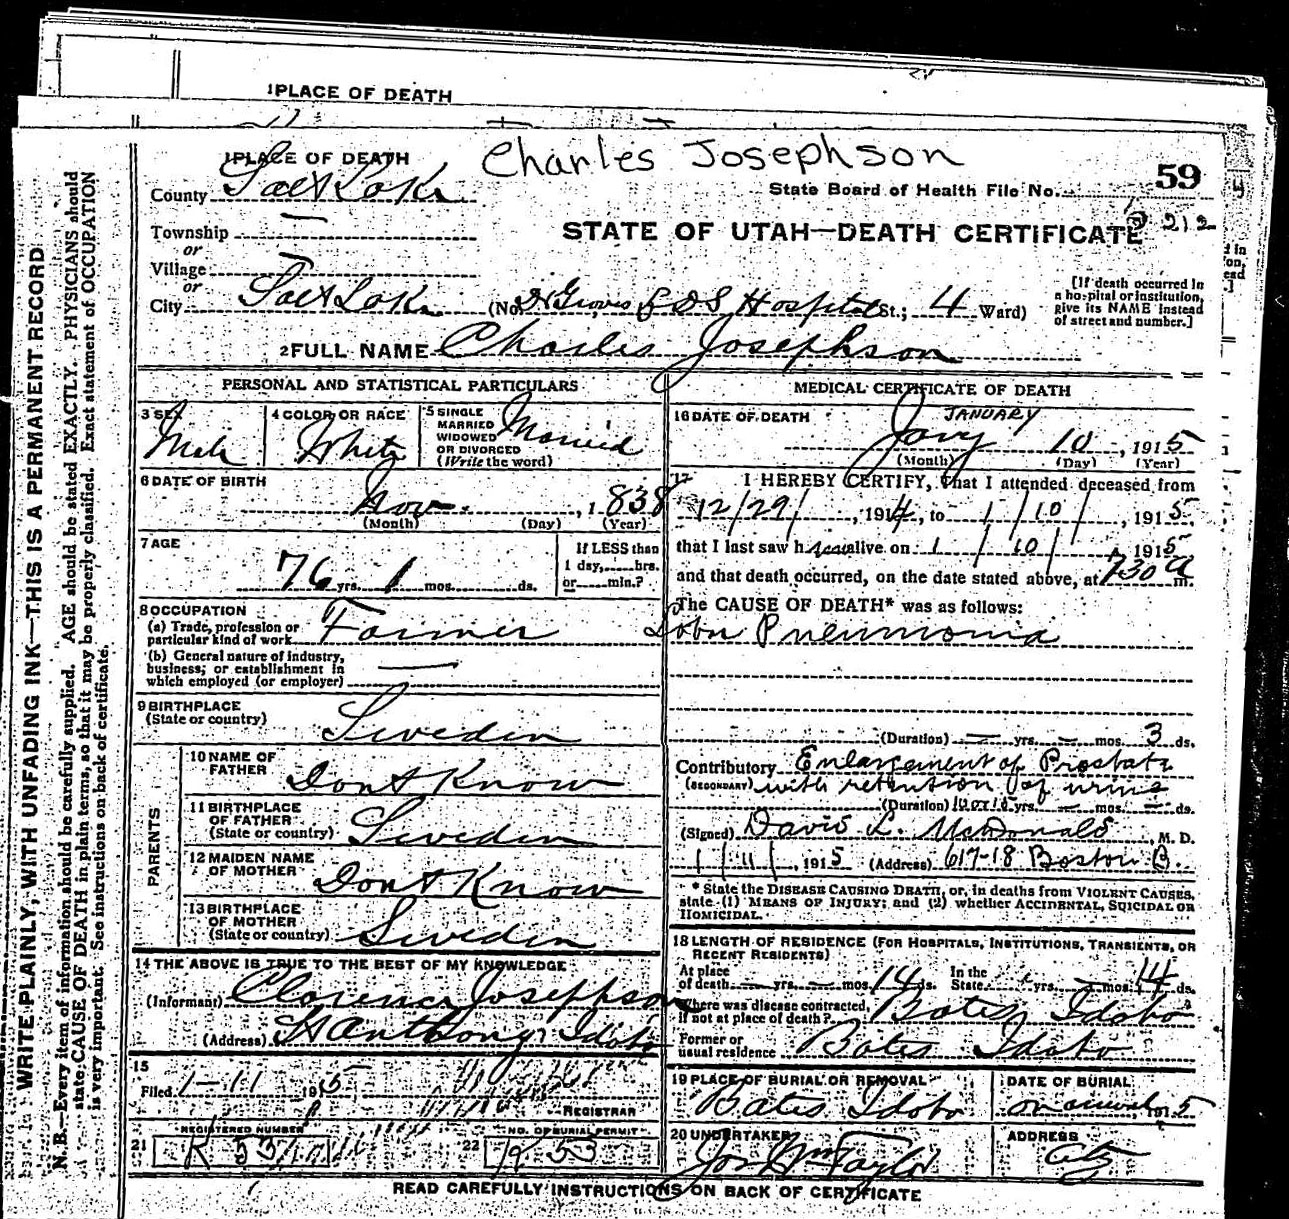 1 PLACE OF DEATH
1 PLACE OF DEATH
Charles Josephson
County Salt Lake
State Board of Health File No. 59
212
Township —
or
Village —
or
City Salt Lake (No. Dr Groves L D S Hospital St.; 4 Ward)
STATE OF UTAH—DEATH CERTIFICATE
[If death occurred in
a hospital or institution,
give its NAME instead
of street and number.]
2 FULL NAME Charles Josephson
PERSONAL AND STATISTICAL PARTICULARS
3 SEX
Male
4 COLOR OR RACE
White
5 SINGLE
MARRIED
WIDOWED
OR DIVORCED
(Write the word)
Married
6 DATE OF BIRTH
Nov. , 1838
(Month) (Day) (Year)
7 AGE
76 yrs. 1 mos. ds.
If LESS than
1 day, hrs.
or min.?
8 OCCUPATION
(a) Trade, profession or
particular kind of work Farmer
(b) General nature of industry,
business, or establishment in
which employed (or employer) —
9 BIRTHPLACE
(State or country)
Sweden
PARENTS
10 NAME OF
FATHER
Dont Know
11 BIRTHPLACE
OF FATHER
(State or country)
Sweden
12 MAIDEN NAME
OF MOTHER
Dont Know
13 BIRTHPLACE
OF MOTHER
(State or country)
Sweden
14 THE ABOVE IS TRUE TO THE BEST OF MY KNOWLEDGE
(Informant) Clarence Josephson
(Address) St Anthony Idaho
15
Filed 1-11 1915
REGISTRAR
REGISTERED NUMBER
21 K 53
NO. OF BURIAL PERMIT
22 K 53
MEDICAL CERTIFICATE OF DEATH
16 DATE OF DEATH
JANUARY
Jany 10, 1915
(Month) (Day) (Year)
17 I HEREBY CERTIFY, That I attended deceased from
12/29/, 1914, to 1/10/, 1915,
that I last saw him alive on 1/10/, 1915
and that death occurred, on the date stated above, at 730 a m.
The CAUSE OF DEATH* was as follows:
Lobar Pneumonia
(Duration) — yrs. — mos. 3 ds.
Contributory Enlargement of Prostate
(SECONDARY) with retention of urine
(Duration) yrs. — mos. — ds.
(Signed) David L. McDonald, M. D.
1/11/, 1915 (Address) 617-18 Boston B.
* State the DISEASE CAUSING DEATH, or, in deaths from VIOLENT CAUSES,
state (1) MEANS OF INJURY; and (2) whether ACCIDENTAL, SUICIDAL OR
HOMICIDAL.
18 LENGTH OF RESIDENCE (FOR HOSPITALS, INSTITUTIONS, TRANSIENTS, OR
RECENT RESIDENTS)
At place
of death — yrs. — mos. 14 ds.
In the
State yrs. — mos. 14 ds.
Where was disease contracted,
if not at place of death? Bates, Idaho
Former or
usual residence Bates Idaho
19 PLACE OF BURIAL OR REMOVAL
Bates Idaho
DATE OF BURIAL
on arrival 1915
20 UNDERTAKER
Jos Wm Taylor
ADDRESS
City
READ CAREFULLY INSTRUCTIONS ON BACK OF CERTIFICATE
WRITE PLAINLY, WITH UNFADING INK—THIS IS A PERMANENT RECORD
N. B.—Every item of information should be carefully supplied. AGE should be stated EXACTLY. PHYSICIANS should
state CAUSE OF DEATH in plain terms, so that it may be properly classified. Exact statement of OCCUPATION
is very important. See instructions on back of certificate.